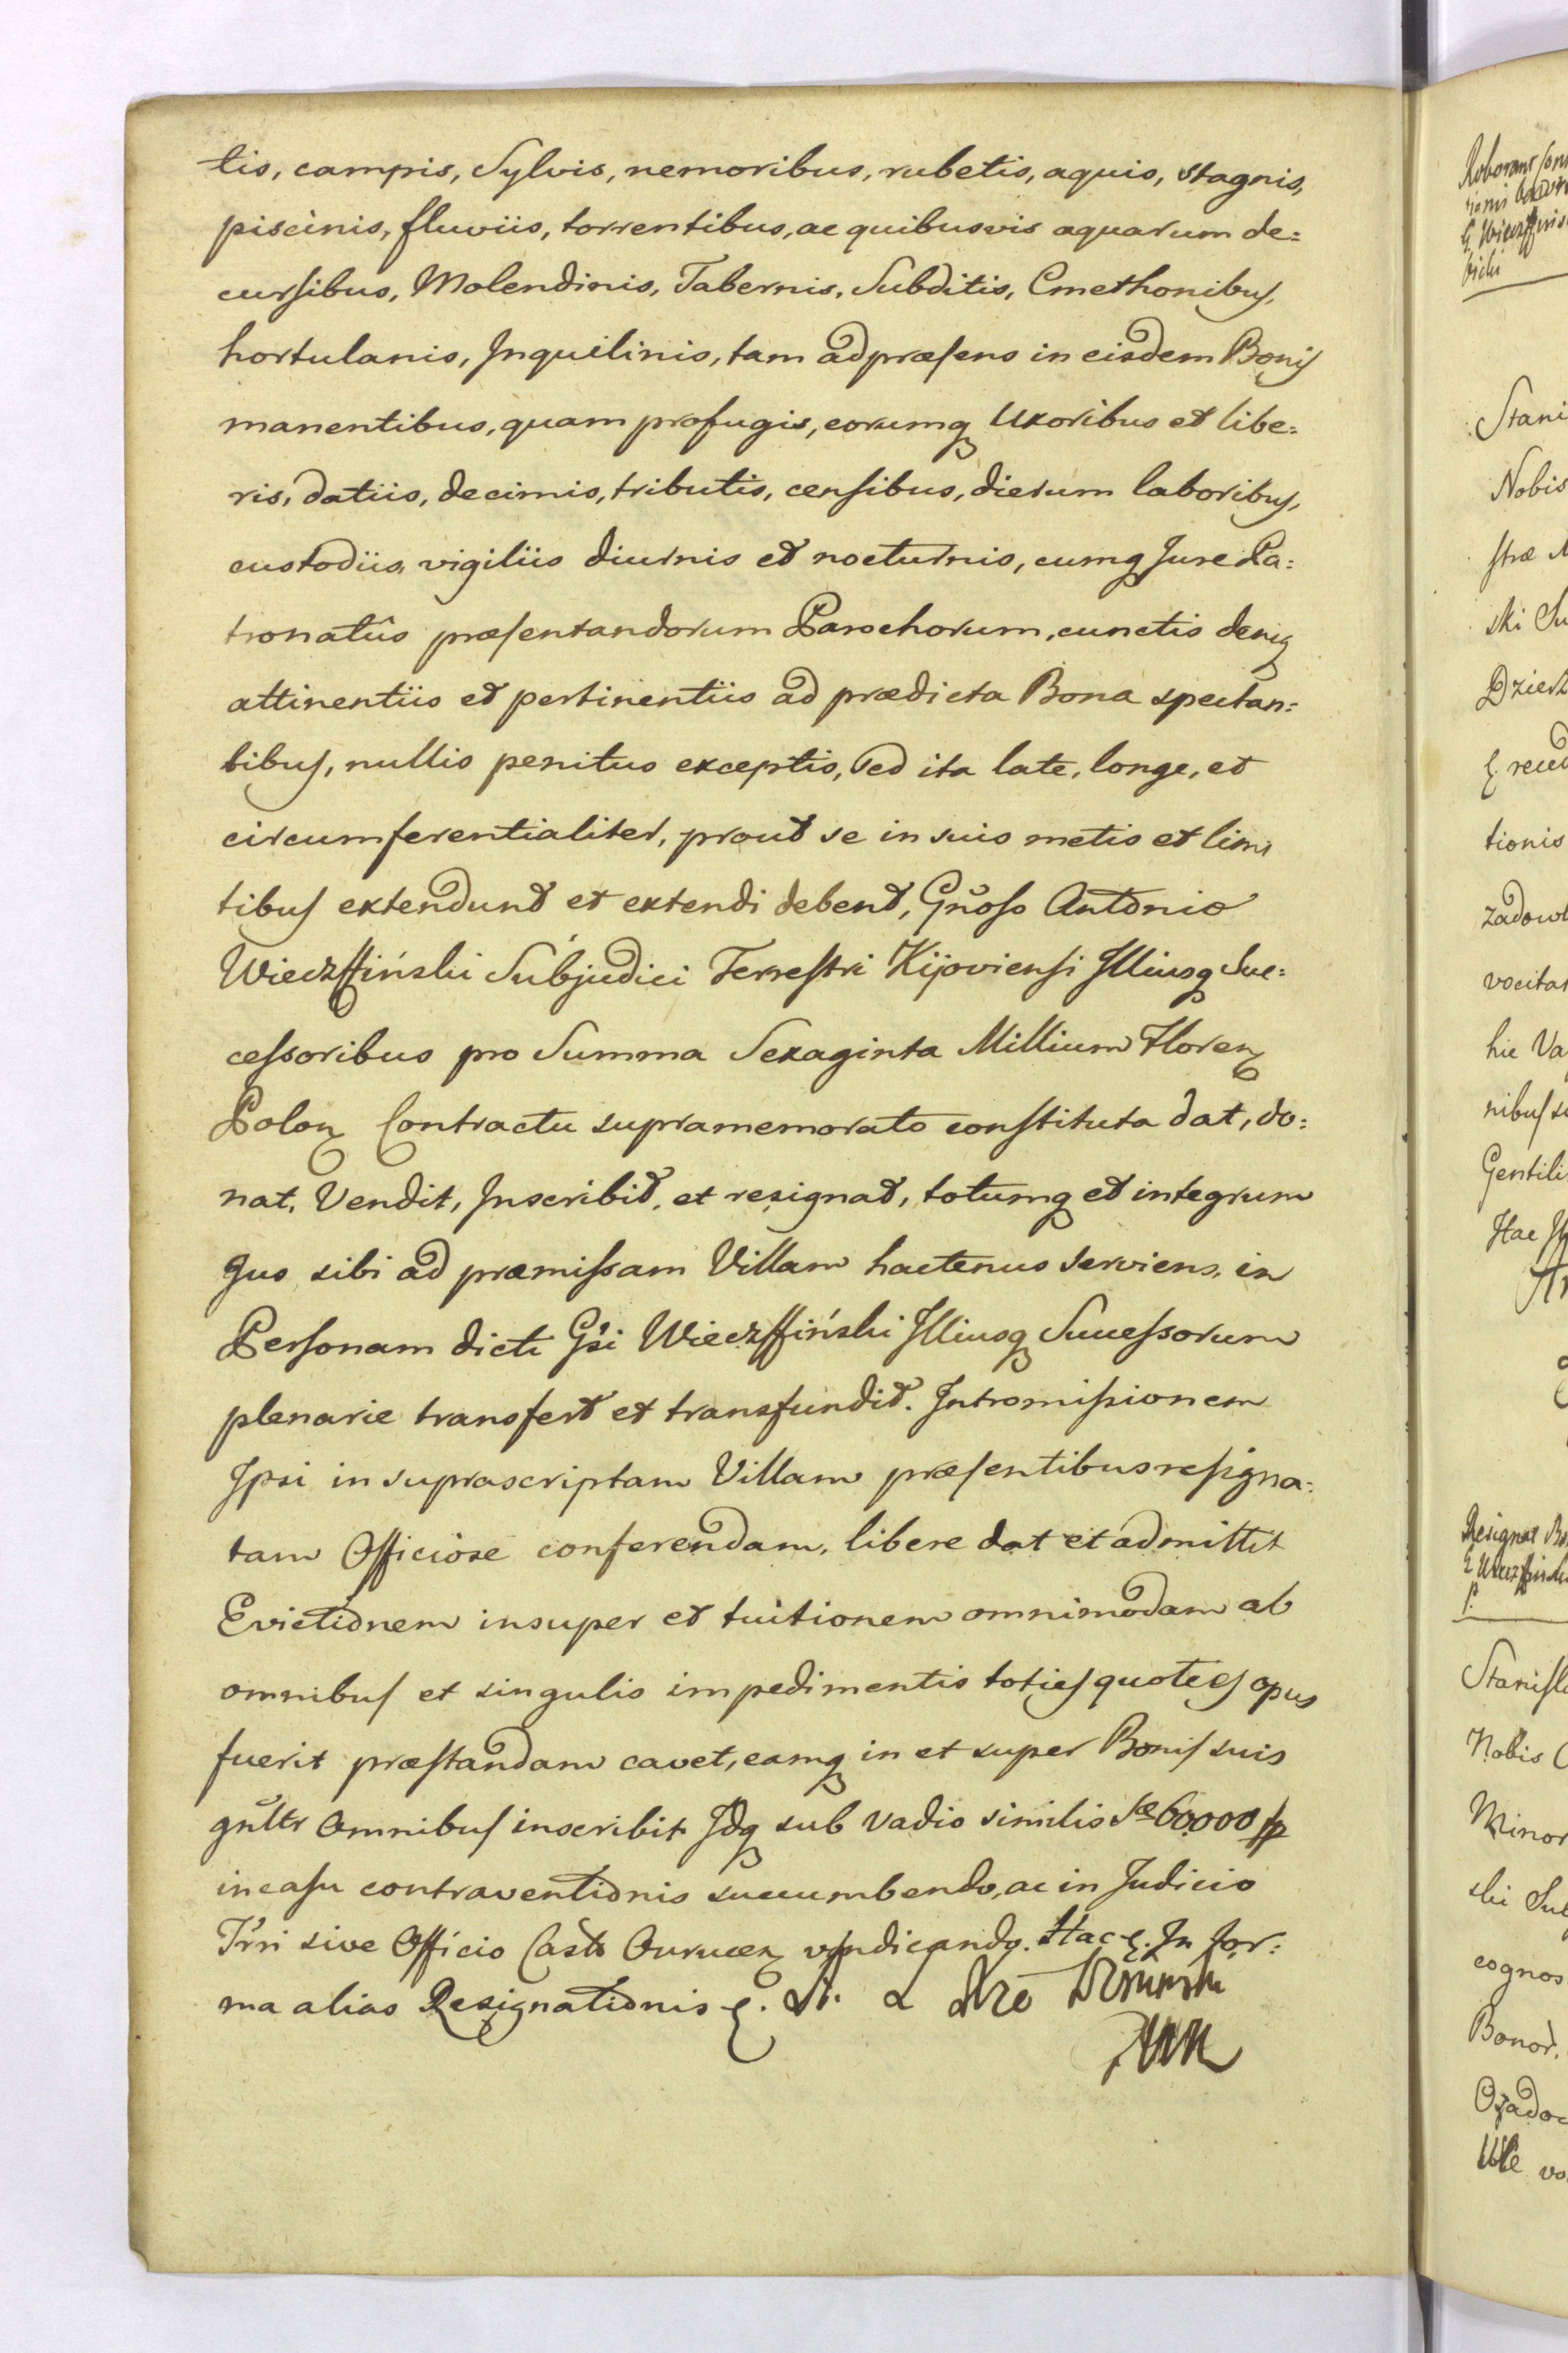 tis, campis, Sylvis, nemoribus, rubetis, aquis, stagnis,
piscinis, fluviis, torrentibus, ac quibusvis aquarum de=
cursibus, Molendinis, Tabernis, Subditis, Cmethonibus,
hortulanis, Inquilinis, tam ad præsens in eisdem Bonis
manentibus, quam profugis, eorumq Uxoribus et libe=
ris, datiis, decimis, tributis, censibus, dierum laboribus,
custodiis, vigiliis diurnis et nocturnis, cumq Jure Pa=
tronatûs præsentandorum Parochorum, cunctis deniq
attinentiis et pertinentiis ad prædicta Bona spectan=
tibus, nullis penitus exceptis, sed ita late, longe, et
circumferentialiter, prout se in suis metis et limi
tibus extendunt et extendi debent, Gnoso Antonio
Wieczffiński Subjudici Terrestri Kijoviensi Illiusq Suc=
cessoribus pro Summa Sexaginta Millium Floren
Polon Contractu supramemorato constituta dat, do=
nat, Vendit, Inscribit, et resignat, totumq et integrum
Jus sibi ad præmissam Villam hactenus serviens, in
Personam dicti Gsi Wieczffiński Illiusq Successorum
plenarie transfert et transfundit. Intromissionem
Ipsi in suprascriptam Villam præsentibus resigna=
tam Officiose conferendam, libere dat et admittit
Evictionem insuper et tuitionem omnimodam ab
omnibus et singulis impedimentis toties quoties opus
fuerit præstandam cavet, eamq in et super Bonis suis
gnltr Omnibus inscribit Idq sub vadio similis Sæ 60000 fp
in casu contraventionis succumbendo, ac in Judicio
Trri sive Officio Castr Owrucen vendicando. Hac In for=
ma alias Resignationis
Stani
Nobis
stræ
ski Su
Dzierż
reced
tionis
zadow
vocitat
hic Va
nibus
Gentili
Hac
Resignat
Stanisla
Nobis
Minor
ski Sub
cognos
Bonor.